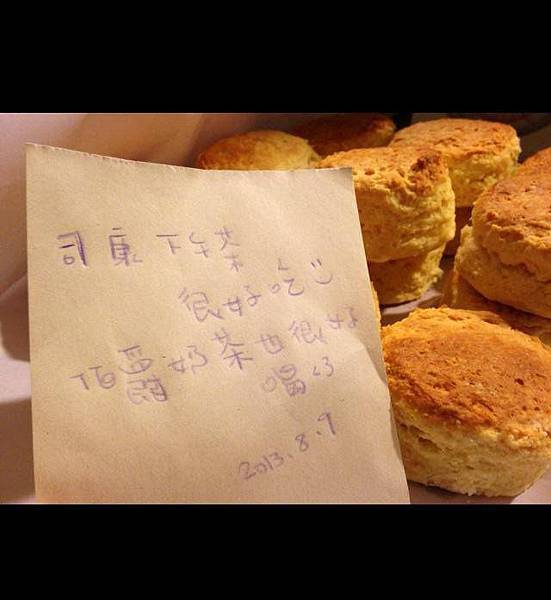 司康下午茶
很好吃
伯爵奶茶也很好
喝
2013.8.9